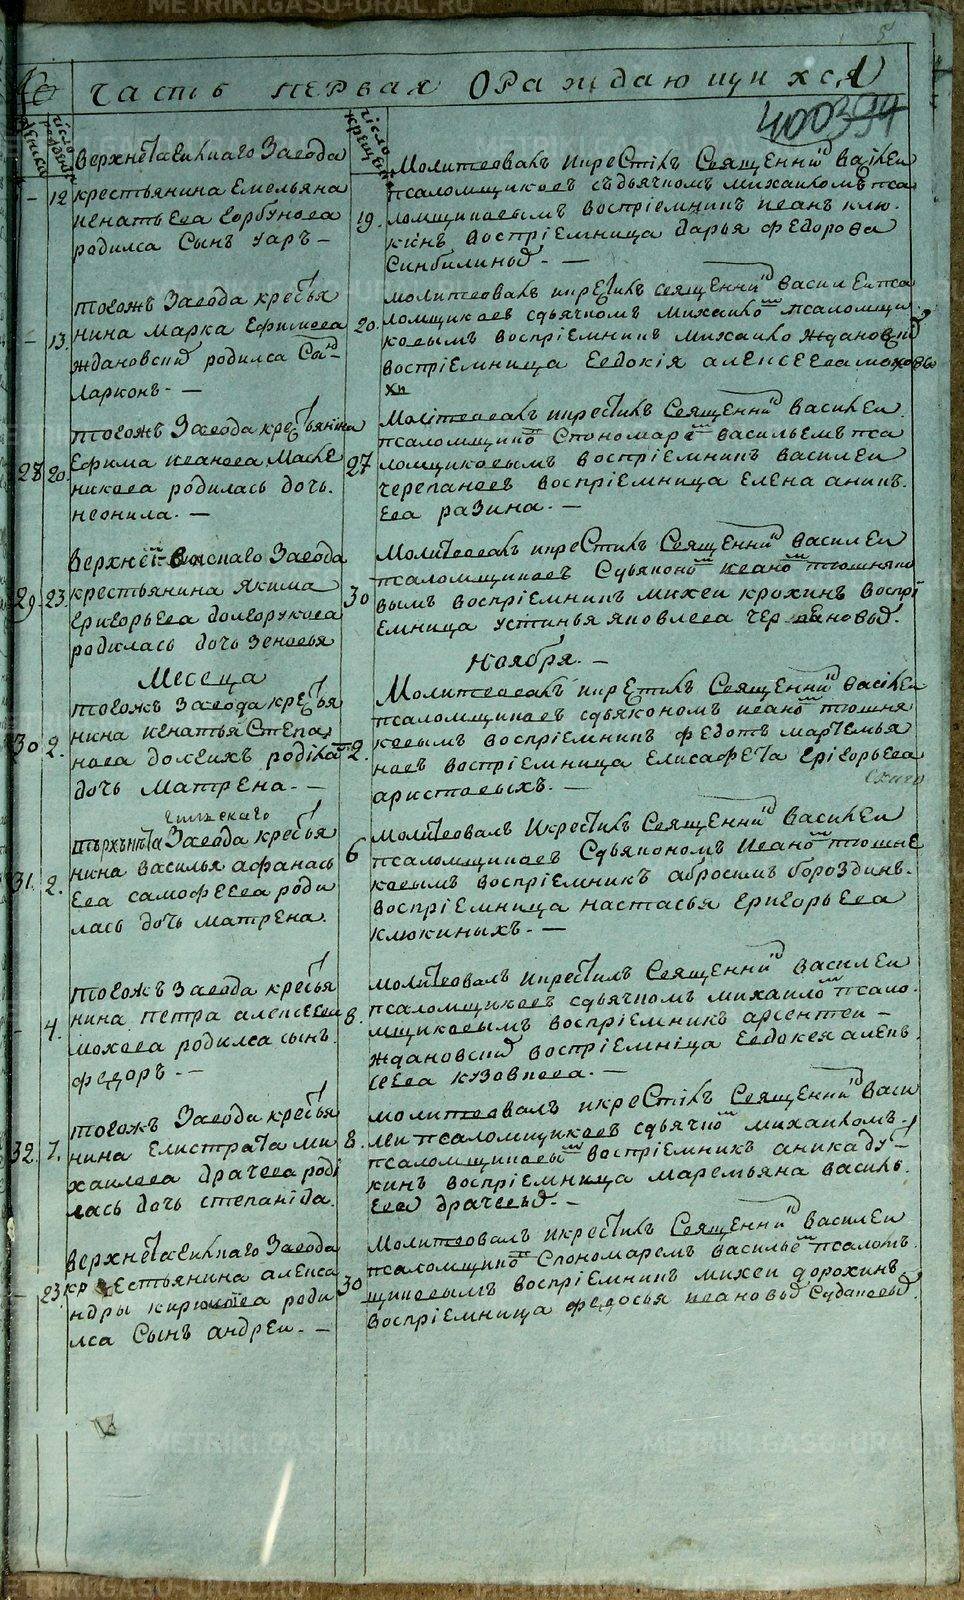 5
Часть первая о раждающихся
400 394
число рожден
число крещен
верхнетагилкаго Завода
12 крестьянина Емельяна
игнатьева горбунова
родился Сынъ уаръ –
19. Молитвовалъ икрестилъ Священникъ Василеи
псаломщиковъ съдьячкомъ михаиломъ пса
ломщиковымъ воспрiемникъ иванъ клю
кинъ воспрiемница дарья федорова
–
тогожъ Завода крестья
13. нина марка Ефимова
ждановскихъ родился Сынъ
ларионъ –
20. молитвовалъ икрестилъ священникъ василеи пса
ломщиковъ сдьячкомъ михаиломъ псаломщи
ковымъ воспрiемникъ михаило ждановскихъ
воспрiемница Евдокiя алексеева
тогожъ Завода крестьянина
28 20. Ефима иванова
никова родилась дочь
неонила –
27 Молiтвовалъ икрестилъ Священникъ василеи
псаломщиковъ Спономаремъ васильемъ пса
ломщиковымъ воспрiемникъ василеи
черепановъ воспрiемница Елена аник
ева разина –
Завода
29 23. крестьянина Якима
григорьева долгорукова
родилась дочь Зеновья
30 Молитвовалъ икрестилъ Священникъ василеи
псаломщиковъ Сдьякономъ иваномъ
вымъ воспрiемникъ михеи крохинъ воспрi
емница устинья яковлева
Месеца ноября –
тогожъ Завода крестья
30 2. нина игнатья Степа
нова долгихъ родилась
дочь матрена –
2. Молитвовалъ икрестилъ Священникъ василеи
псаломщиковъ сдьякономъ иваномъ
ковымъ воспрiемникъ федотъ мартемья
новъ воспрiемница Елисафета григорьева
аристовыхъ –
гилскаго
Завода крестья
31. 2. нина василья афанась
ева самофеева роди
лась дочь матрена.
6 молитвовалъ Икрестилъ Священникъ Василеи
псаломщиковъ Сдьякономъ Иваномъ
ковымъ воспрiемникъ абросимъ бороздинъ
воспрiемница настасья григорьева
клюкиныхъ –
тогожъ Завода крестья
4. нина петра алексеева
мохова родился сынъ
федоръ –
8. молитвовалъ икрестилъ Священникъ василеи
псаломщиковъ сдьячкомъ михаиломъ псало
мщиковымъ воспрiемникъ арсентеи –
ждановскихъ воспрiемнiца Евдокея алек
сеева кузовнева –
тогожъ Завода крестья
32. 7. нина Елистрата ми
хаилева драчева родi
лась дочь степанiда
8. молитвовалъ икрестiлъ Священникъ Васи
леи псаломщиковъ сдьячкомъ михаиломъ
псаломщиковымъ воспрiемникъ аника ду
кинъ воспрiемница маремьяна василь
ева драчевыхъ –
верхнетагилкаго Завода
23. крестьянина алекса
ндры кирилова роди
лса Сынъ андреи –
30 Молитвовалъ икрестилъ Священникъ василеи
псаломщиковъ Спономаремъ васильемъ псалом
щиковымъ воспрiемникъ михеи дорохинъ
воспрiемница федосья ивановыхъ
METRIKI.GASO-URAL.RU